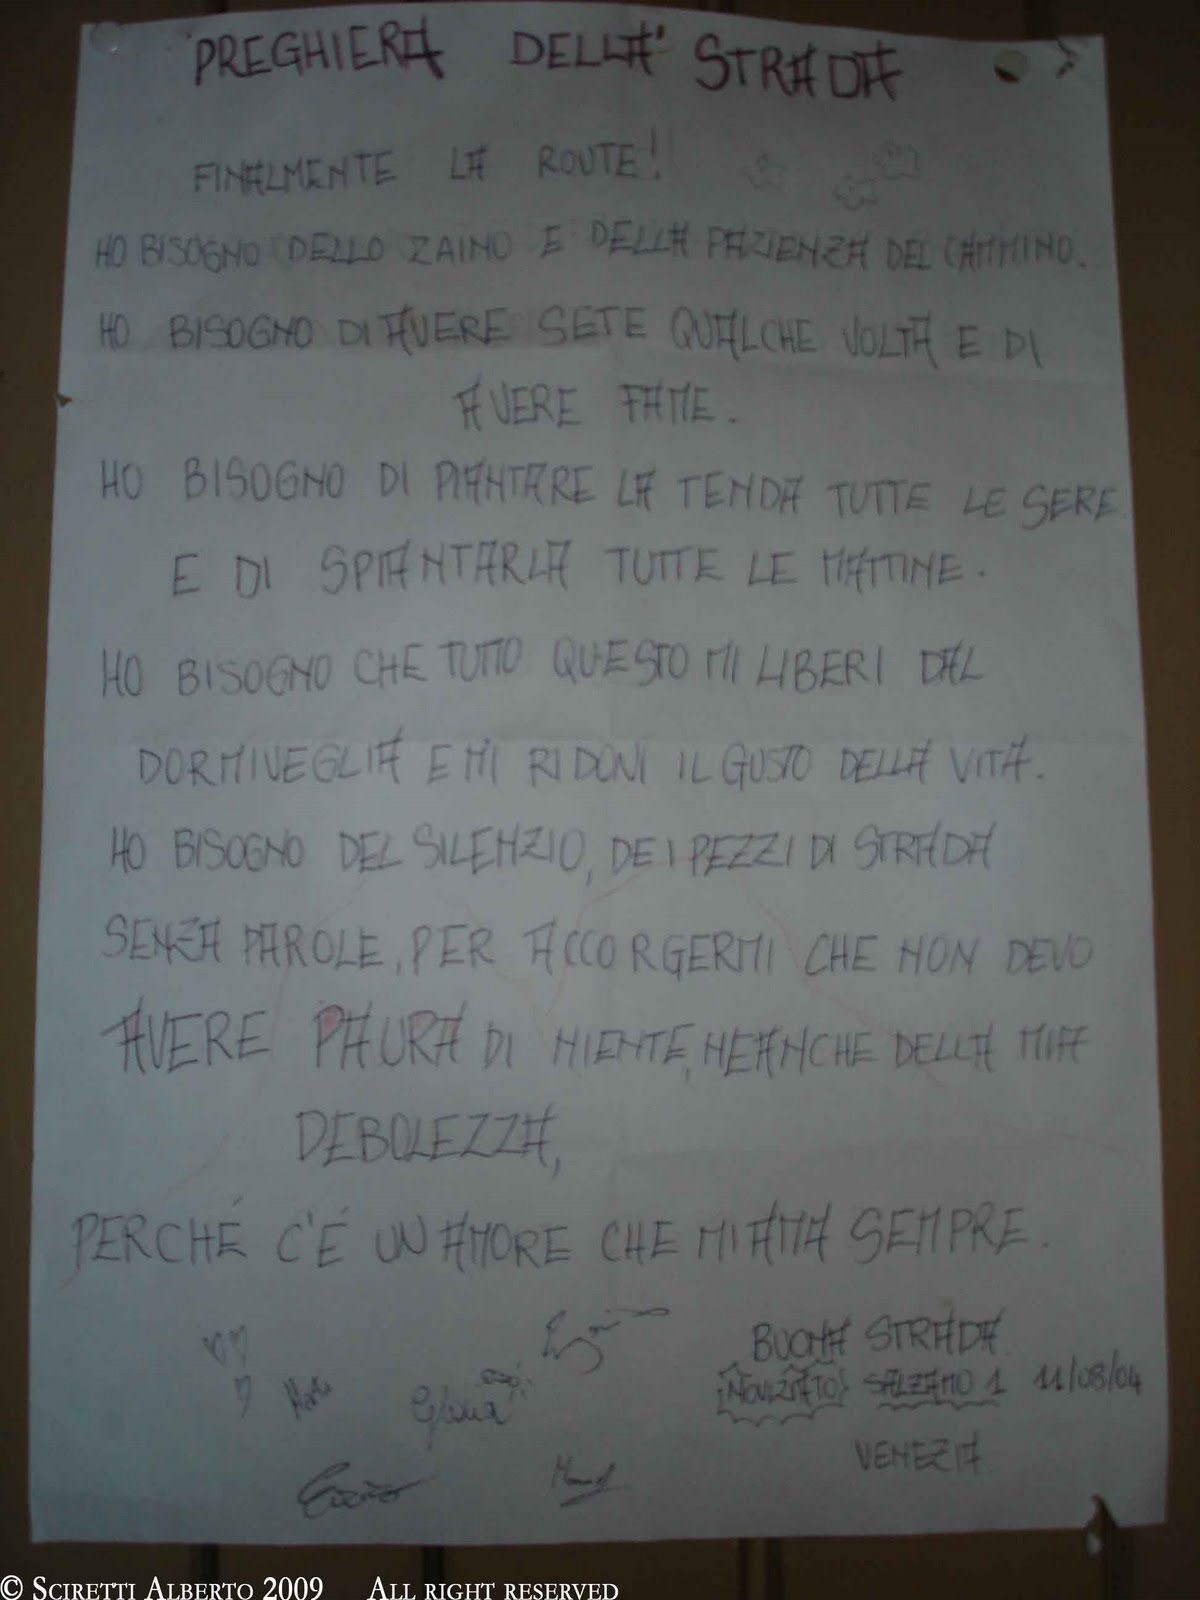 PREGHIERA DELLA STRADA
FINALMENTE LA ROUTE!
HO BISOGNO DELLO ZAINO E DELLA PAZIENZA DEL CAMMINO.
HO BISOGNO DI AVERE SETE QUALCHE VOLTA E DI
AVERE FAME.
HO BISOGNO DI PIANTARE LA TENDA TUTTE LE SERE
E DI SPIANTARLA TUTTE LE MATTINE.
HO BISOGNO CHE TUTTO QUESTO MI LIBERI DAL
DORMIVEGLIA E MI RIDONI IL GUSTO DELLA VITA.
HO BISOGNO DEL SILENZIO, DEI PEZZI DI STRADA
SENZA PAROLE, PER ACCORGERMI CHE NON DEVO
AVERE PAURA DI NIENTE, NEANCHE DELLA MIA
DEBOLEZZA,
PERCHÉ C'É UN AMORE CHE MI AMA SEMPRE.
BUONA STRADA
NOVIZIATO SALZANO 1 11/08/04
VENEZIA
© SCIRETTI ALBERTO 2009 ALL RIGHT RESERVED